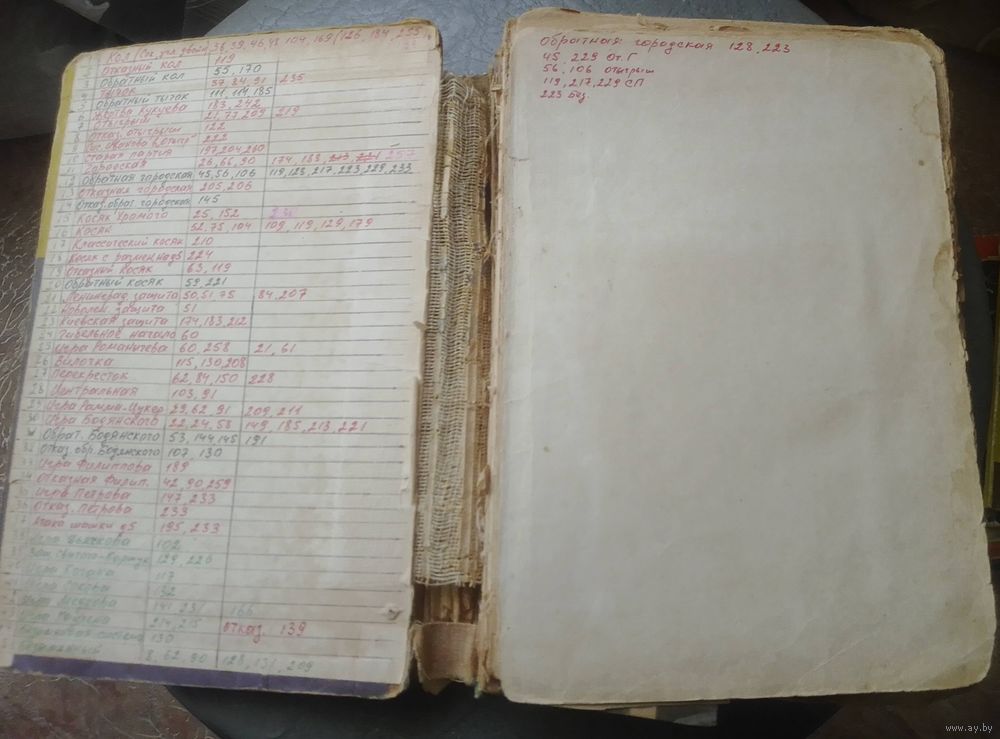 Кол (Сок, угл. двойн) 36, 39, 46, 48, 104, 169 (126, 184, 255
2 Отказный кол 119
3 Обратный кол 55, 170
4 Тычок 57, 84, 91 235
5 Обратный тычок 111, 114, 185
6 Жертва Кукуева 183, 242
7 Отыгрыш 21, 77, 209 219
8 Отказ. отыгрыш 122
222
10 Старая партия 197, 204, 260
11 Городская 26, 66, 90 174, 183, 213 221 257
12 Обратная городская 45, 56, 106 119, 123, 217, 223, 229, 233
13 Отказная городская 205, 206
14 Отказ. обрат. городская 145
15 Косяк Хромого 25, 152
16 Косяк 52, 75, 104 109, 119, 129, 179
17 Классический косяк 210
18 Косяк с разменна d5 224
19 Отказной косяк 63, 119
0 Обратный косяк 59, 221
21 Ленинград. защита 50, 51, 75 84, 207
22 защита 51
23 Киевская защита 174, 183, 212
24 Гибельное начало 60
25 Игра Романычева 60, 258 21, 61
26 Вилочка 115, 130, 208
27 Перекресток 62, 84, 150 228
28 Центральная 103, 91
29 Игра Рамма-Цукер 29, 62, 91 209, 211
30 Игра Бодянского 22, 24, 58 149, 185, 213, 221
Обрат. Бодянского 53, 144, 145 191
32 Отказ. обр. Бодянского 107, 130
33 Игра Филиппова 189
34 Отказная Филип. 42, 90, 259
Игра Петрова 147, 233
Отказ. Петрова 233
7 Атака шашки d5 195, 233
102
129, 226
117
132
141, 231 166
214, 215 отказ. 139
система 130
8, 62, 90 128, 131, 209
Обратная городская 128, 223
45, 229 От. Г
56, 106 отыгрыш
119, 217, 229 СП
223 Без
www.ay.by